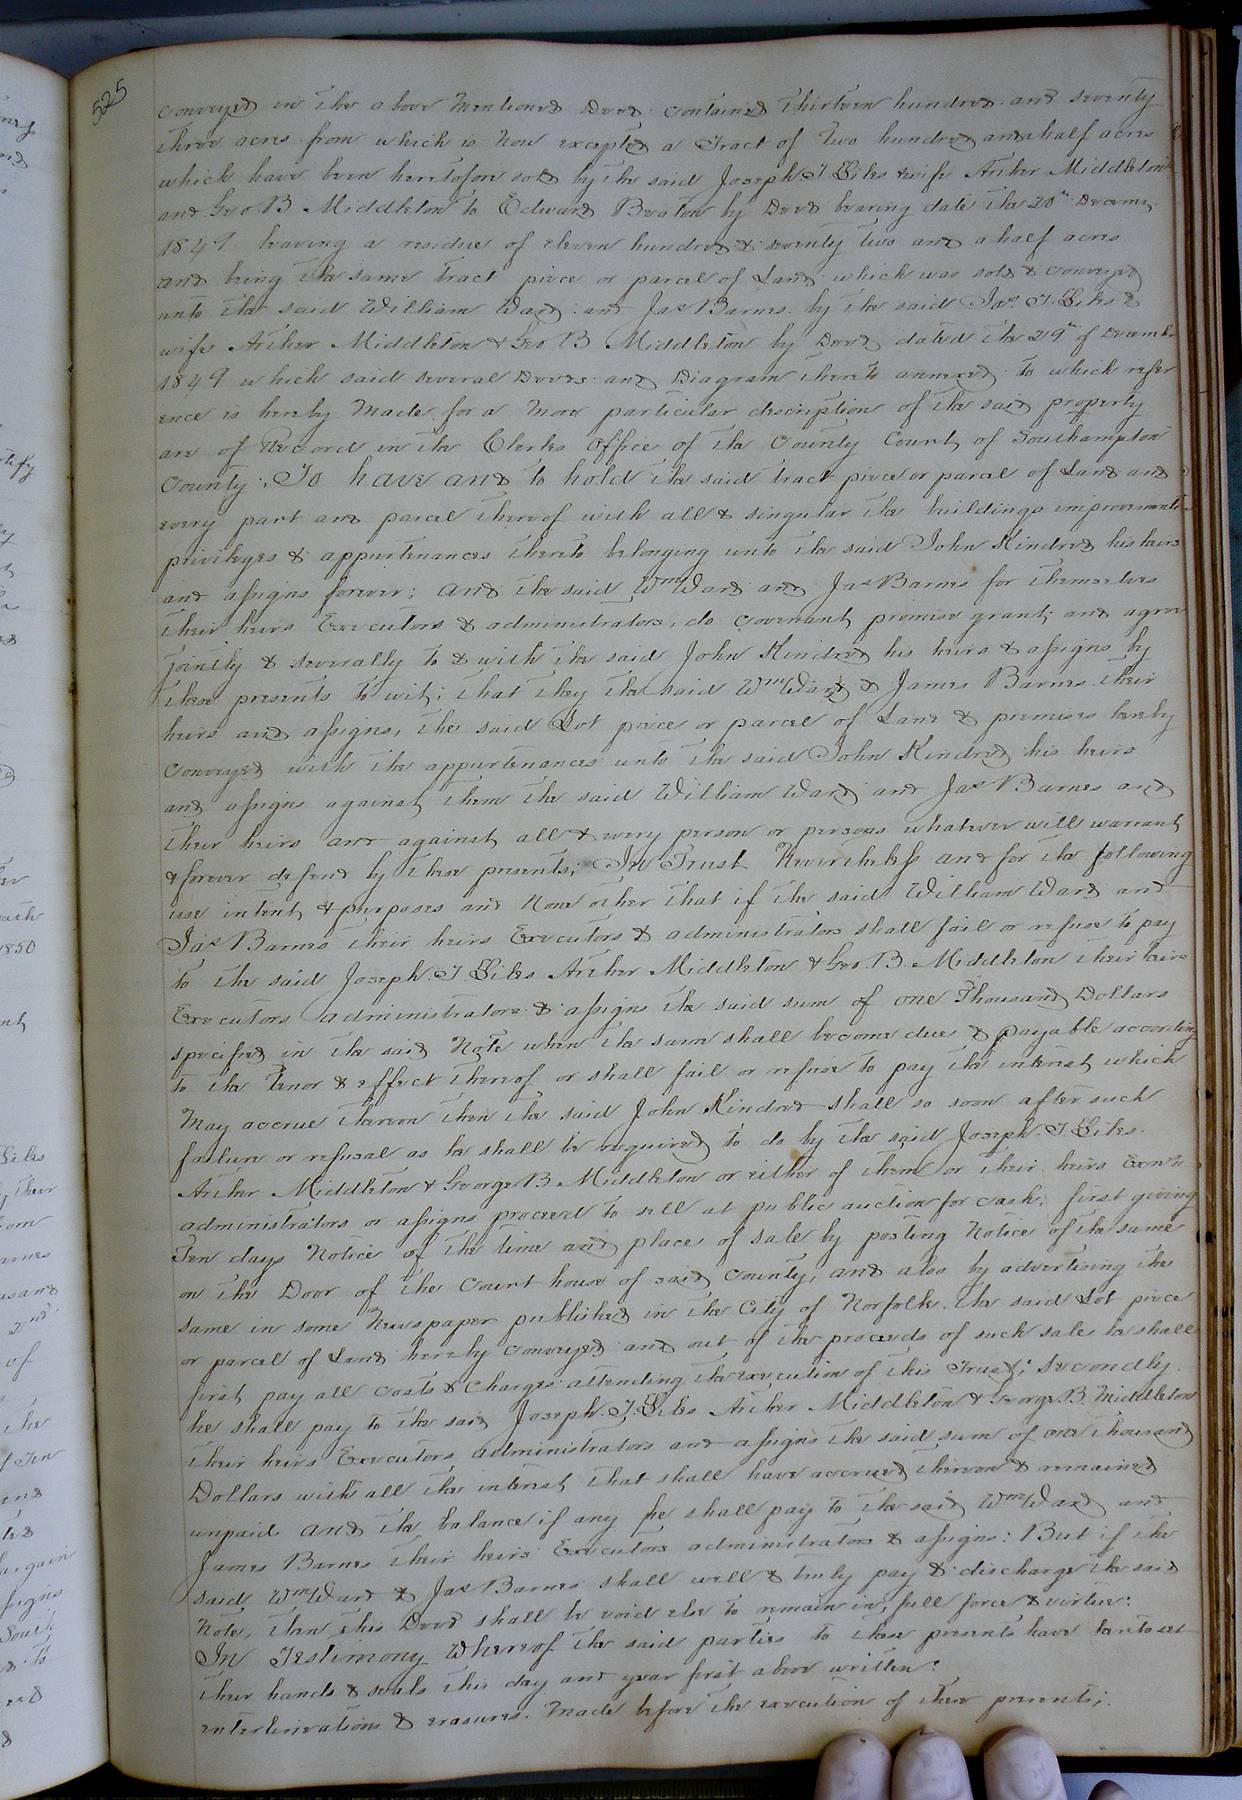 525
conveyed in the above Mentioned Deed contained Thirteen hundred and seventy
three acres from which is Now excepted a Tract of Two hundred and a half acres
which have been heretofore sold by the said Joseph T Liles & wife Archer Middleton
and Geo B Middleton to Edward Beaton by Deed bearing date the 20th Decemr
1849 leaving a residue of eleven hundred & seventy two and a half acres
and being the same tract piece or parcel of Land which was sold & conveyed
unto the said William Ward and Jas Barnes by the said Jos. T. Liles &
wife Archer Middleton & Geo B Middleton by Deed dated the 29th of Decemb.
1849 which said several Deeds and Diagram thereto annexed to which refer
ence is hereby Made for a More particular description of the said property
are of Record in the Clerks Office of the County Court of Southampton
County; To have and to hold the said tract piece or parcel of Land and
every part and parcel thereof with all & singular the buildings improvements
privileges & appurtenances thereto belonging unto the said John Kindred his heirs
and assigns forever; and the said Wm Ward and Jas Barnes for themselves
their heirs Executors & administrators, do covenant promise grant and agree
jointly & severally to & with the said John Kindred his heirs & assigns by
these presents to wit; that they the said Wm Ward & James Barnes their
heirs and assigns, the said Lot piece or parcel of Land & premises hereby
conveyed with the appurtenances unto the said John Kindred his heirs
and assigns against them the said William Ward and Jas Barnes and
their heirs and against all & every person or persons whatever will warrant
& forever defend by these presents; In Trust Nevertheless and for the following
use intent & purposes and None other that if the said William Ward and
Jas Barnes their heirs Executors & administrators shall fail or refuse to pay
to the said Joseph T. Liles Archer Middleton & Geo. B. Middleton their heirs
Executors administrators & assigns the said sum of one Thousand Dollars
specified in the said Note when the same shall become due & payable according
to the Tenor & effect thereof or shall fail or refuse to pay the interest which
May accrue thereon then the said John Kindred shall so soon after such
failure or refusal as he shall be required to do by the said Joseph T Liles.
Archer Middleton & George B Middleton or either of them or their heirs Exors
administrators or assigns proceed to sell at public auction for cash; first giving
Ten days Notice of the time and place of sale by posting Notice of the same
on the Door of the Court house of said County, and also by advertising the
same in some Newspaper published in the City of Norfolk. the said Lot piece
or parcel of Land hereby conveyed and out of the proceeds of such sale he shall
first pay all costs & charges attending the execution of this Trust; secondly.
he shall pay to the said Joseph T. Liles Archer Middleton & George B. Middleton
their heirs Executors, administrators and assigns the said sum of one thousand
Dollars with all the interest that shall have accrued thereon & remained
unpaid and the balance if any he shall pay to the said Wm Ward and
James Barnes their heirs Executors administrators & assigns: But if the
said Wm Ward & Jas Barnes shall well & truly pay & discharge the said
Note, then this Deed shall be void else to remain in full force & virtue:
In Testimony Whereof the said parties to these presents have hereto set
their hands & seals this day and year first above written:
enterlinerations & erasures. Made before the execution of these presents;